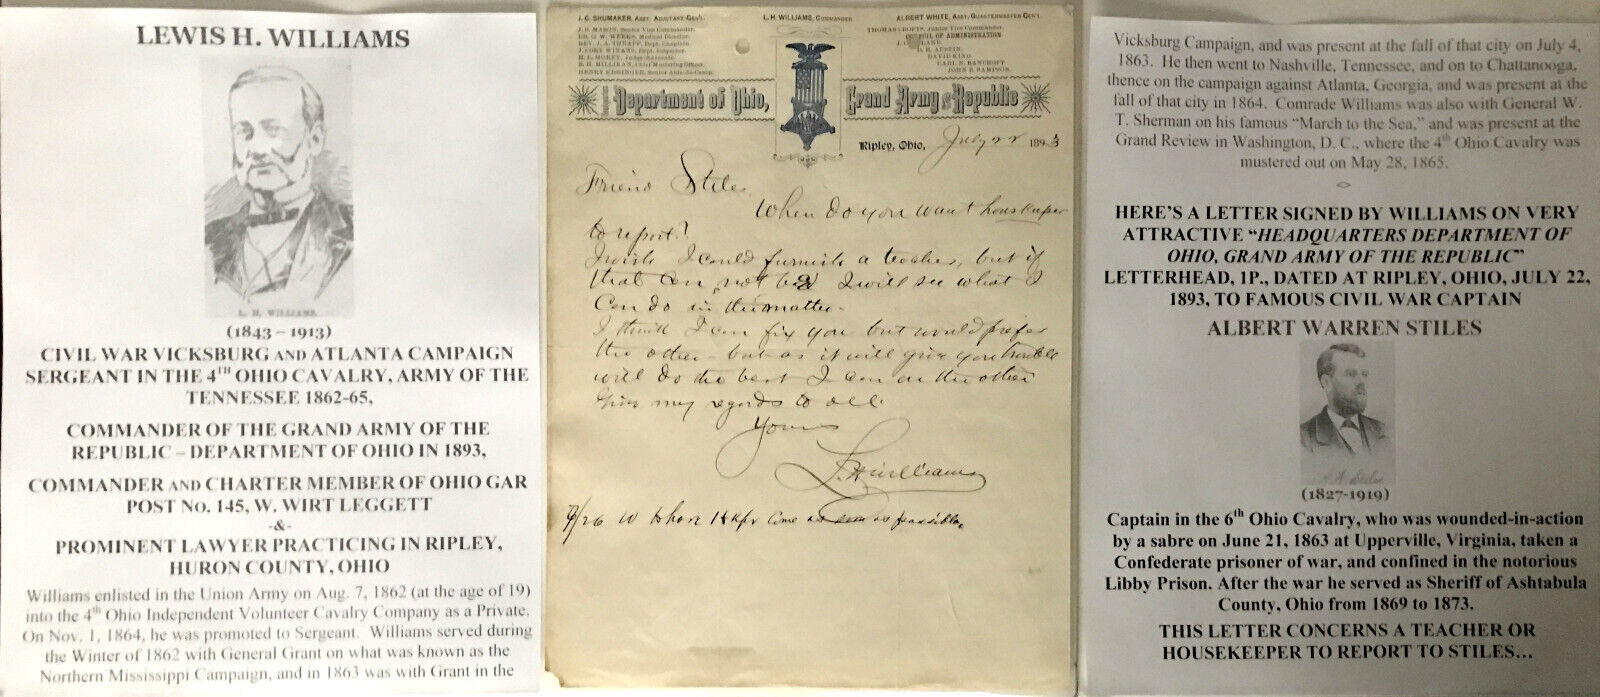 LEWIS H. WILLIAMS
L. H. WILLIAMS.
(1843 – 1913)
CIVIL WAR VICKSBURG AND ATLANTA CAMPAIGN
SERGEANT IN THE 4TH OHIO CAVALRY, ARMY OF THE
TENNESSEE 1862-65,
COMMANDER OF THE GRAND ARMY OF THE
REPUBLIC – DEPARTMENT OF OHIO IN 1893,
COMMANDER AND CHARTER MEMBER OF OHIO GAR
POST No. 145, W. WIRT LEGGETT
-&-
PROMINENT LAWYER PRACTICING IN RIPLEY,
HURON COUNTY, OHIO
Williams enlisted in the Union Army on Aug. 7, 1862 (at the age of 19)
into the 4th Ohio Independent Volunteer Cavalry Company as a Private.
On Nov. 1, 1864, he was promoted to Sergeant. Williams served during
the Winter of 1862 with General Grant on what was known as the
Northern Mississippi Campaign, and in 1863 was with Grant in the
J. C. SHUMAKER, ASST. ADJUTANT GEN'L.
L. H. WILLIAMS, COMMANDER
ALBERT WHITE, ASST. QUARTERMASTER GEN'L.
Senior Vice Commander.
DR. G. W. WEEKS, Medical Director.
REV. J. A. THRAPP, Dept. Chaplain.
J. CORY WINANS, Dept. Inspector.
H. L. MOREY, Judge Advocate.
B. H. MILLIKAN, Chief Mustering Officer.
Senior Aide-de-Camp.
Junior Vice Commander.
COUNCIL OF ADMINISTRATION
D. R. AUSTIN.
DAVID KING.
EARL N. BANCROFT
JOHN E. SAMPSON.
Department of Ohio, Grand Army of the Republic
Ripley, Ohio, July 22 1893
Friend Stiles
When do you want houskeeper
to report?
I wish I could furnish a teacher, but if
that can not be I will see what I
can do in the matter.
I think I can fix you but would prefer
the other - but as it will give you trouble
will do the best I can on the other
Give my regards to all.
Yours
L. H. Williams
come as soon as possible
Vicksburg Campaign, and was present at the fall of that city on July 4,
1863. He then went to Nashville, Tennessee, and on to Chattanooga,
thence on the campaign against Atlanta, Georgia, and was present at the
fall of that city in 1864. Comrade Williams was also with General W.
T. Sherman on his famous “March to the Sea,” and was present at the
Grand Review in Washington, D. C., where the 4th Ohio Cavalry was
mustered out on May 28, 1865.
HERE'S A LETTER SIGNED BY WILLIAMS ON VERY
ATTRACTIVE “HEADQUARTERS DEPARTMENT OF
OHIO, GRAND ARMY OF THE REPUBLIC”
LETTERHEAD, 1P., DATED AT RIPLEY, OHIO, JULY 22,
1893, TO FAMOUS CIVIL WAR CAPTAIN
ALBERT WARREN STILES
A. W. Stiles
(1827-1919)
Captain in the 6th Ohio Cavalry, who was wounded-in-action
by a sabre on June 21, 1863 at Upperville, Virginia, taken a
Confederate prisoner of war, and confined in the notorious
Libby Prison. After the war he served as Sheriff of Ashtabula
County, Ohio from 1869 to 1873.
THIS LETTER CONCERNS A TEACHER OR
HOUSEKEEPER TO REPORT TO STILES...